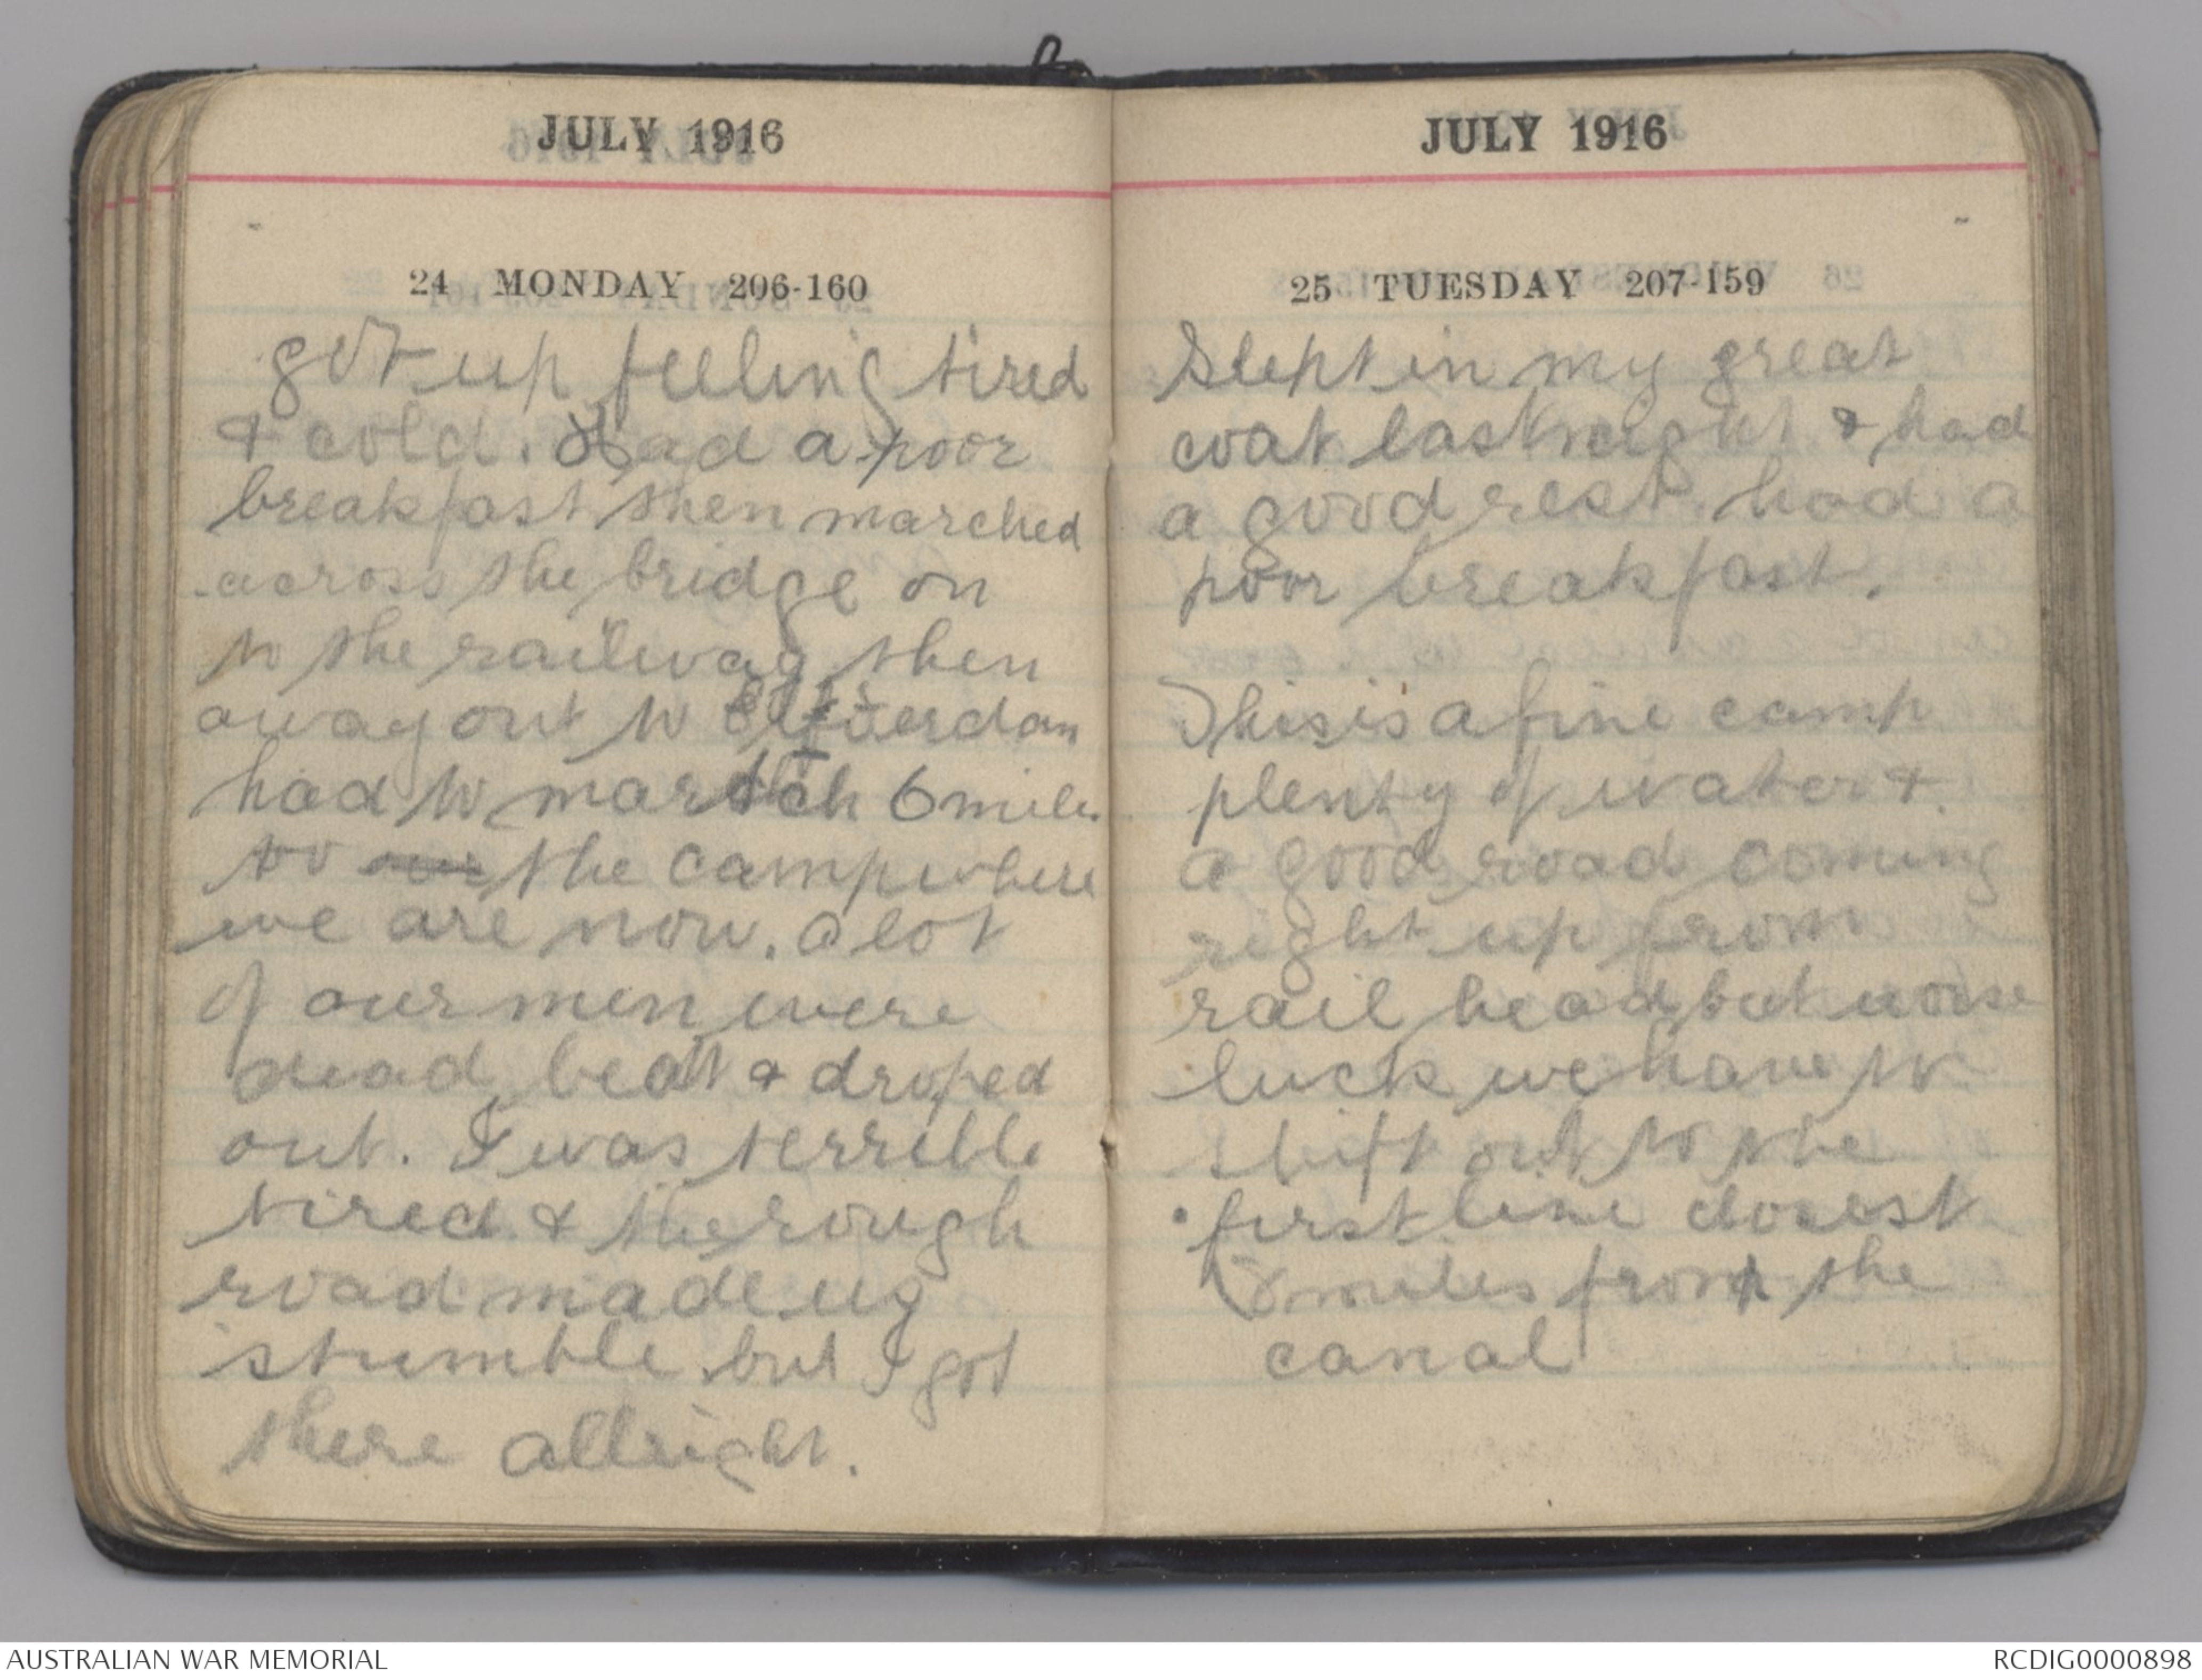 JULY 1916
24 MONDAY 206-160
got up feeling tired
& cold. Had a poor
breakfast then marched
across the bridge on
to the railway then
away out to
had to march 6 miles
to our the camp where
we are now. A lot
of our men were
dead beat & droped
out. I was terrible
tired & the rough
road made us
stumble but I got
there allright.
JULY 1916
25 TUESDAY 207-159
Slept in my great
coat last night & had
a good rest. had a
poor breakfast.
This is a fine camp
plenty of water &
a good road coming
right up from
rail head but worse
luck we have to
shift out to the
first line
miles from the
canal
AUSTRALIAN WAR MEMORIAL
RCDIG0000898